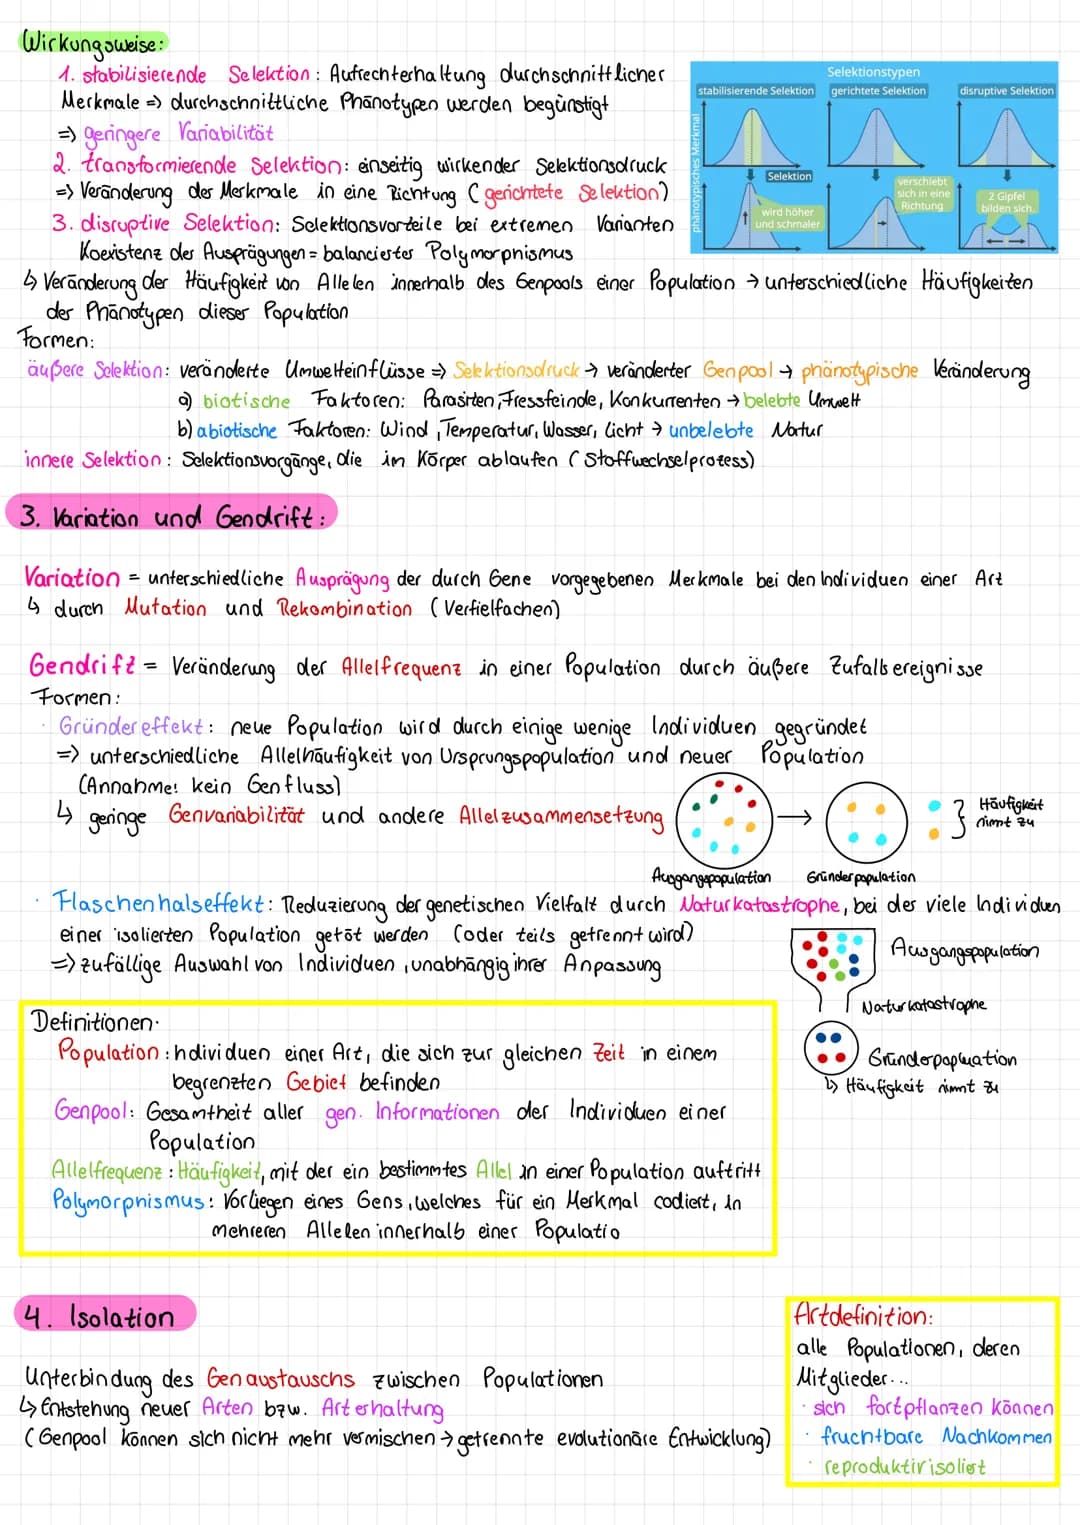 Wirkungsweise:
1. stabilisierende Selektion: Aufrechterhaltung durchschnittlicher
Merkmale => durchschnittliche Phänotypen werden begünstigt
=> geringere Variabilität
2. transformierende Selektion: einseitig wirkender Selektionsdruck
=> Veränderung der Merkmale in eine Richtung (gerichtete Selektion)
3. disruptive Selektion: Selektionsvorteile bei extremen Varianten
Koexistenz der Ausprägungen = balancierter Polymorphismus
Selektionstypen
stabilisierende Selektion gerichtete Selektion disruptive Selektion
phänotypisches Merkmal
Selektion
wird höher
und schmaler
verschiebt
sich in eine
Richtung
2 Gipfel
bilden sich.
↳ Veränderung der Häufigkeit von Allelen innerhalb des Genpools einer Population → unterschiedliche Häufigkeiten
der Phänotypen dieser Population
Formen:
äußere Selektion: veränderte Umwelteinflüsse => Selektionsdruck → veränderter Genpool → phänotypische Veränderung
a) biotische Faktoren: Parasiten, Fressfeinde, Konkurrenten → belebte Umwelt
b) abiotische Faktoren: Wind, Temperatur, Wasser, Licht → unbelebte Natur
innere Selektion: Selektionsvorgänge, die im Körper ablaufen (Stoffwechselprozess)
3. Variation und Gendrift:
Variation = unterschiedliche Ausprägung der durch Gene vorgegebenen Merkmale bei den Individuen einer Art
↳ durch Mutation und Rekombination (Verfielfachen)
Gendrift = Veränderung der Allelfrequenz in einer Population durch äußere Zufallsereignisse
Formen:
· Gründereffekt: neue Population wird durch einige wenige Individuen gegründet
=> unterschiedliche Allelhäufigkeit von Ursprungspopulation und neuer Population
(Annahme: kein Genfluss)
↳ geringe Genvariabilität und andere Allelzusammensetzung
Häufigkeit
nimmt zu
Ausgangspopulation Gründerpopulation
· Flaschenhalseffekt: Reduzierung der genetischen Vielfalt durch Naturkatastrophe, bei der viele Individuen
einer isolierten Population getöt werden (oder teils getrennt wird)
=> zufällige Auswahl von Individuen, unabhängig ihrer Anpassung
Ausgangspopulation
Naturkatastrophe
Gründerpopluation
↳ Häufigkeit nimmt zu
Definitionen:
Population: Individuen einer Art, die sich zur gleichen Zeit in einem
begrenzten Gebiet befinden
Genpool: Gesamtheit aller gen. Informationen der Individuen einer
Population
Allelfrequenz: Häufigkeit, mit der ein bestimmtes Allel in einer Population auftritt
Polymorphismus: Vorliegen eines Gens, welches für ein Merkmal codiert, in
mehreren Allelen innerhalb einer Populatio
4. Isolation
Unterbindung des Genaustauschs zwischen Populationen
↳ Entstehung neuer Arten bzw. Arterhaltung
(Genpool können sich nicht mehr vermischen → getrennte evolutionäre Entwicklung)
Artdefinition:
alle Populationen, deren
Mitglieder...
· sich fortpflanzen können
· fruchtbare Nachkommen
· reproduktiv isoliert